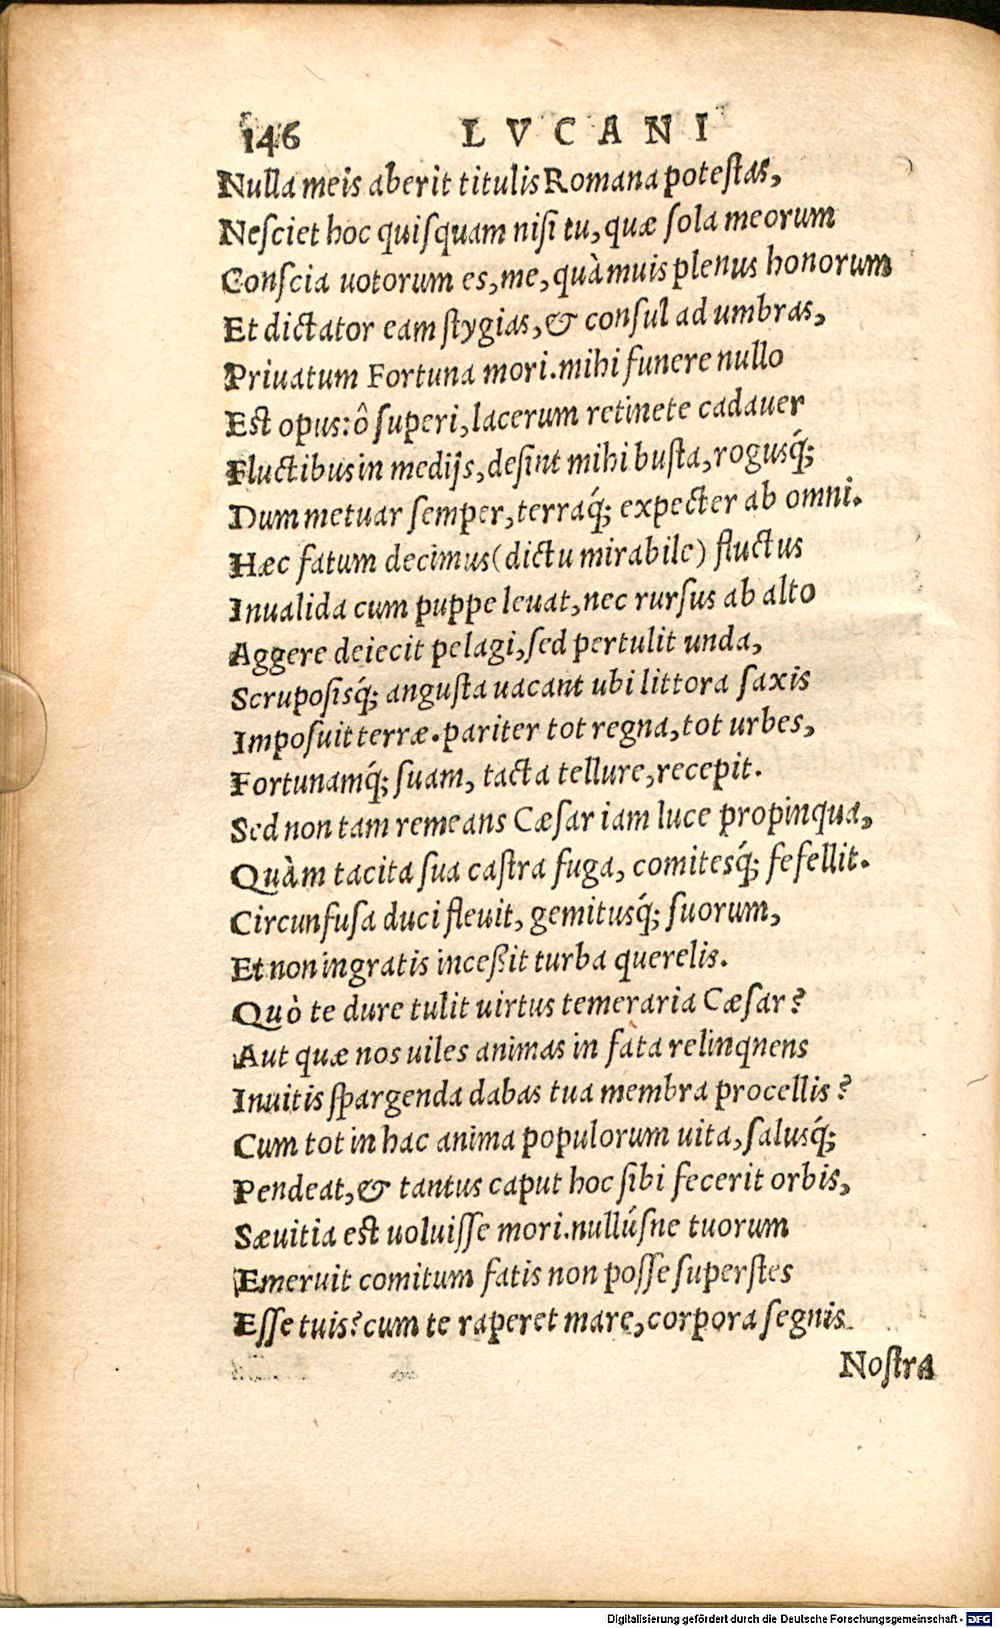 146 LVCANI
Nulla meis aberit titulis Romana poteſtas,
Neſciet hoc quiſquam niſi tu, quæ ſola meorum
Conſcia uotorum es, me, quàmuis plenus honorum
Et dictator eam ſtygias, & conſul ad umbras,
Priuatum Fortuna mori. mihi funere nullo
Eſt opus: ô ſuperi, lacerum retinete cadauer
Fluctibus in medijs, deſint mihi buſta, rogusq́;
Dum metuar ſemper, terraq́; expecter ab omni.
Hæc fatum decimus (dictu mirabile) fluctus
Inualida cum puppe leuat, nec rurſus ab alto
Aggere deiecit pelagi, ſed pertulit unda,
Scrupoſisq́; anguſta uacant ubi littora ſaxis
Impoſuit terræ. pariter tot regna, tot urbes,
Fortunamq́; ſuam, tacta tellure, recepit.
Sed non tam remeans Cæſar iam luce propinqua,
Quàm tacita ſua caſtra fuga, comitesq́; fefellit.
Circunfuſa duci fleuit, gemitusq́; ſuorum,
Et non ingratis inceßit turba querelis.
Quò te dure tulit uirtus temeraria Cæſar?
Aut quæ nos uiles animas in fata relinqnens
Inuitis ſpargenda dabas tua membra procellis?
Cum tot in hac anima populorum uita, ſalusq́;
Pendeat, & tantus caput hoc ſibi fecerit orbis,
Sæuitia eſt uoluiſſe mori. nullúſne tuorum
Emeruit comitum fatis non poſſe ſuperſtes
Eſſe tuis? cum te raperet mare, corpora ſegnis
Noſtra
Digitalisierung gefördert durch die Deutsche Forschungsgemeinschaft - DFG